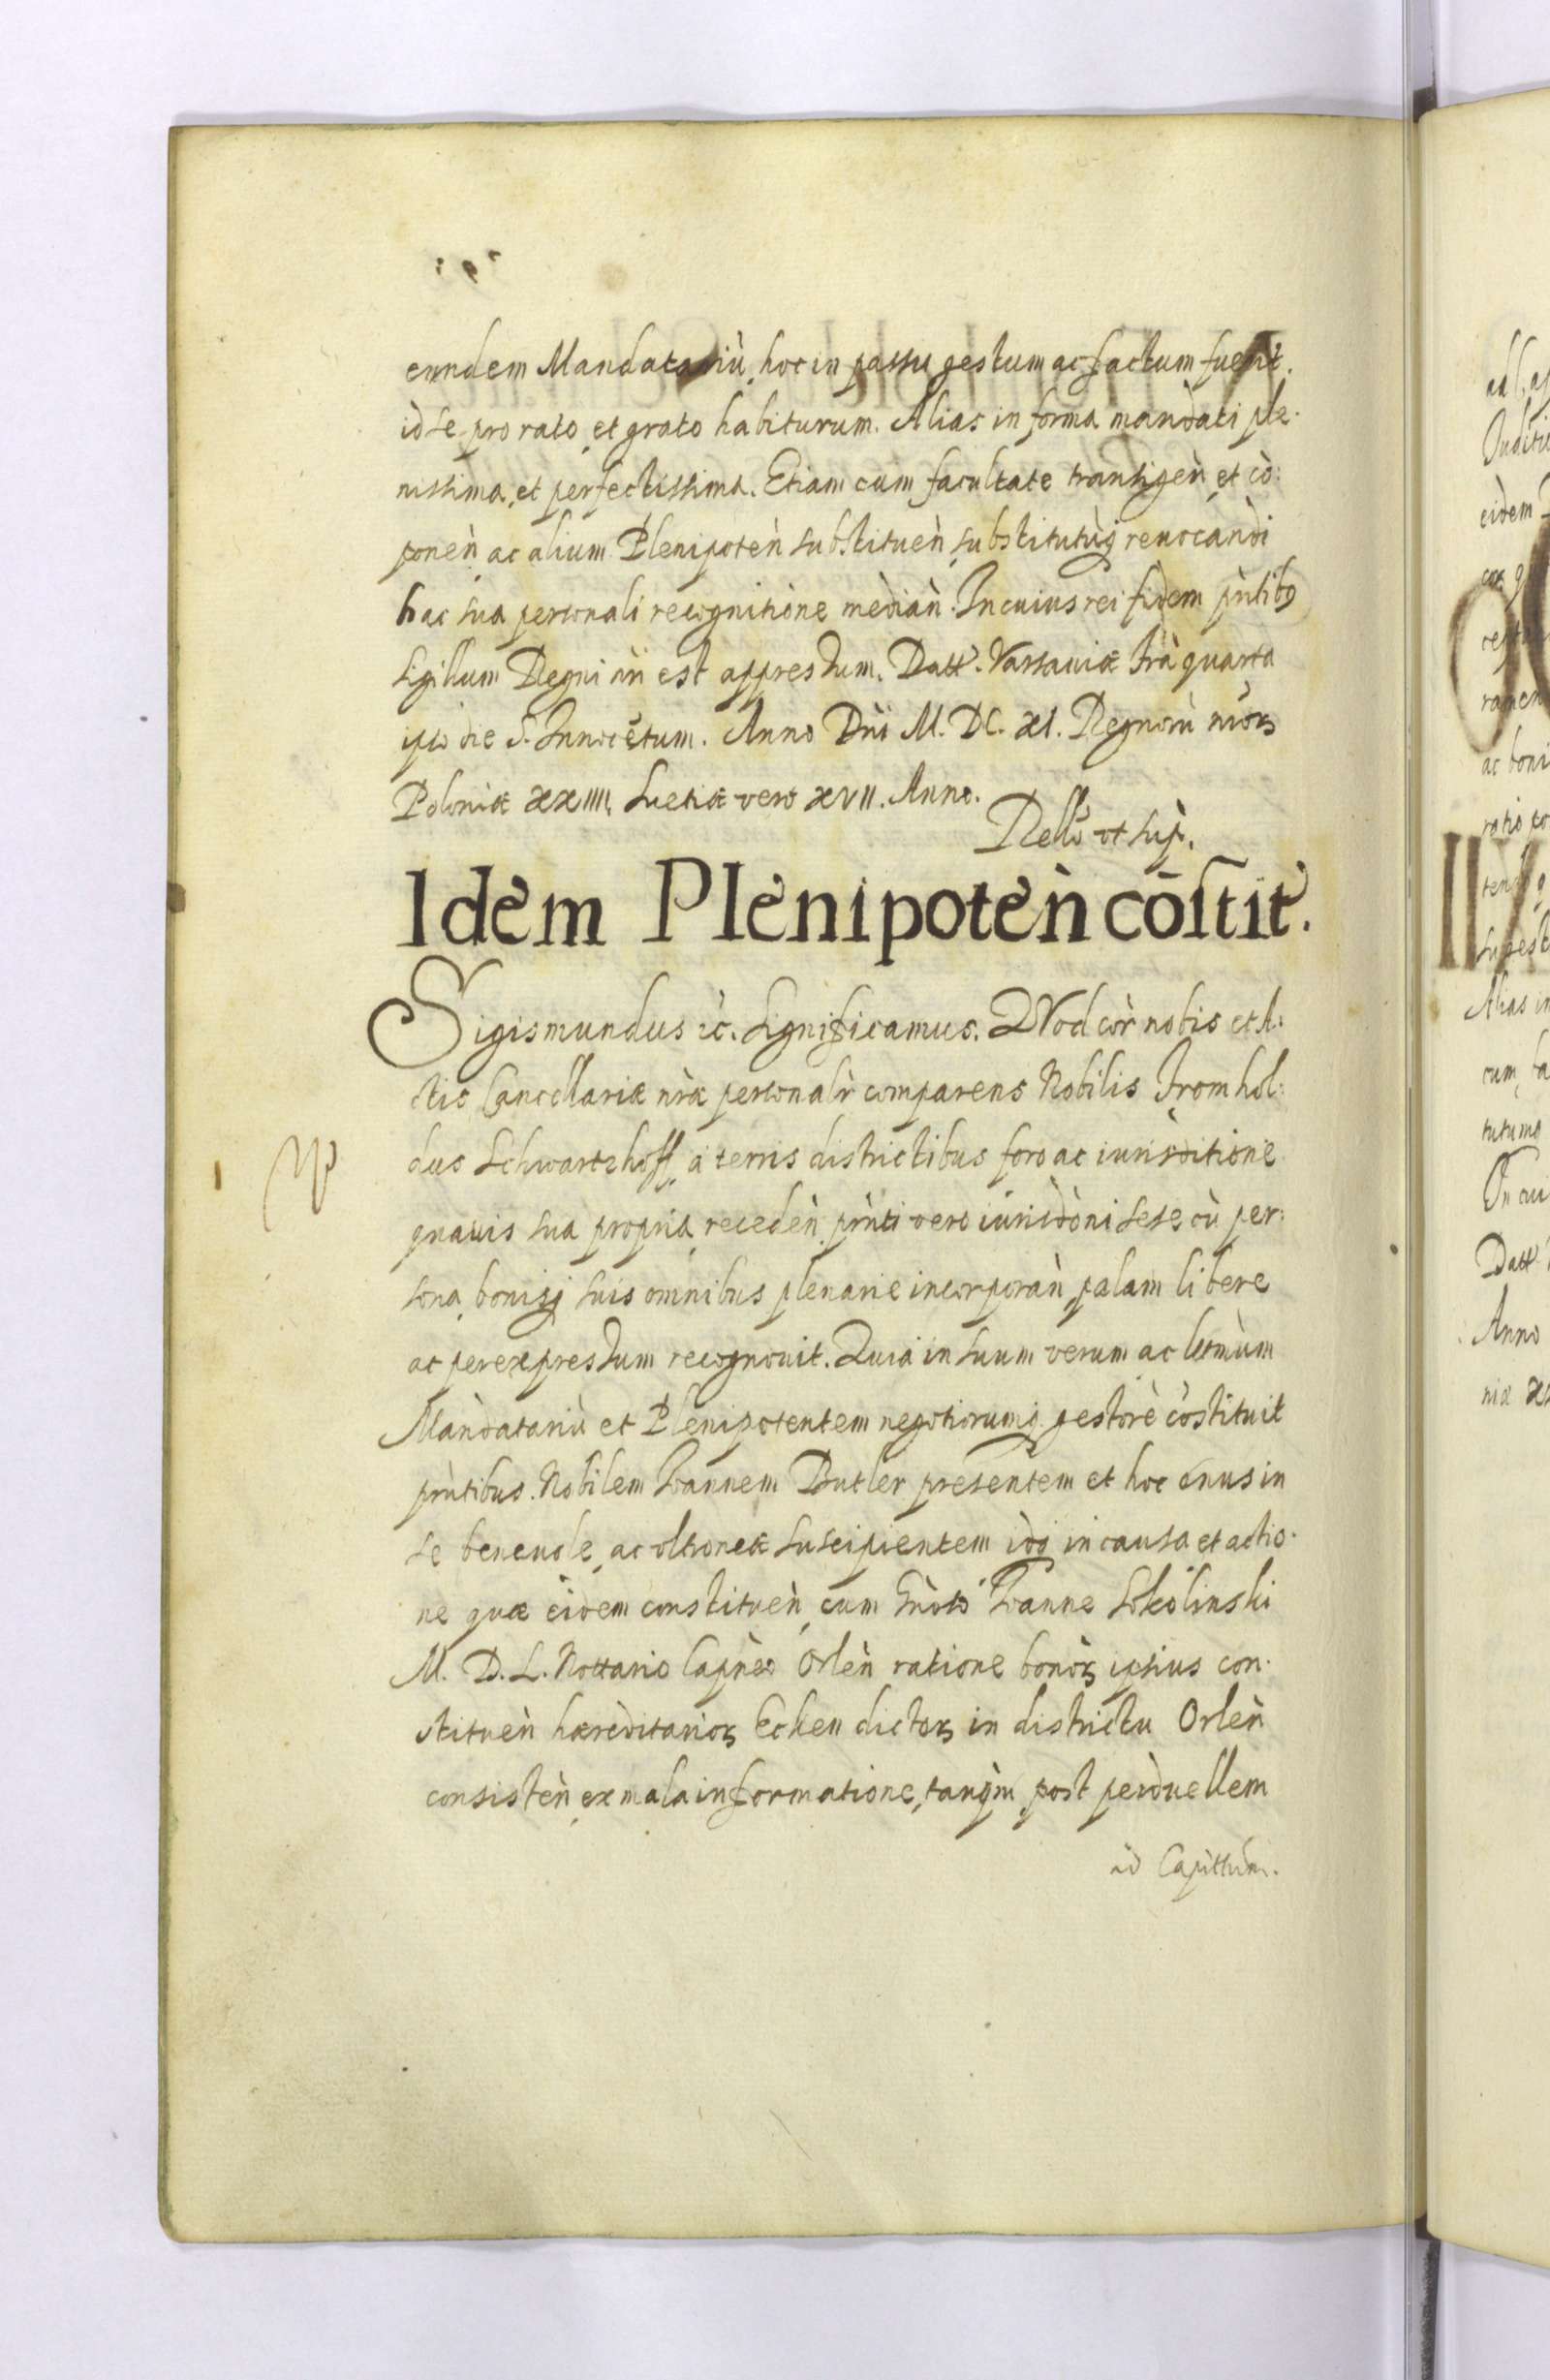 eundem Mandatariù, hoc in passu gestum ac factum fuerit.
id se pro rato, et grato habiturum. Alias in forma mandati ple.
nissima, et perfectissima. Etiam cum facultate transigeǹ, et cò:
poneǹ, ac alium Plenipoteǹ substitueǹ, substitutùq reuocandi
hac sua personali recognitione mediaǹ. In cuius rei fidem pǹtibꝰ
Sigillum Regni ñri est appressum. Datt. Varsauiæ frà quarta
ipso die S. Innocẽtum. Anno Dñi M. DC. XI. Regnorù nrorꝝ
Poloniæ XXIIII, Suetiæ vero XVII. Anno.
Rello vt sup.
Idem Plenipoteǹ cōstit.
Sigismundus ec. Significamus. QVod còr nobis et A:
ctis Cancellariæ nræ personalr comparens Nobilis Fromhol:
dus Schwartzhoff, a terris districtibus foro ac iurisditione
quauis sua propria, recedeǹ, pǹti vero iurisdòni sese cù per:
sona, bonisq suis omnibus plenarie incorporaǹ, palam libere
ac per expressum recognouit. Quia in suum verum ac lètmùm
Mandatariù et Plenipotentem negotiorumq gestorè còstituit
pǹtibus. Nobilem Ioannem Butler presentem et hoc onus in
se beneuole, ac vltroneæ suscipientem idq in causa et actio.
ne quæ eidem constitueǹ, cum Gǹoso Ioanne Sokolinski
M. D. L. Nottario Capǹeo Orleǹ ratione bonorꝝ ipsius con.
stitueǹ hæreditariorꝝ Ecken dictorꝝ in districtu Orleǹ
consisteǹ, ex mala informatione, tanqm, post perduellem
ad Capittum.
ad
eidem
ac boni
Alias in
cum
Datt
Anno